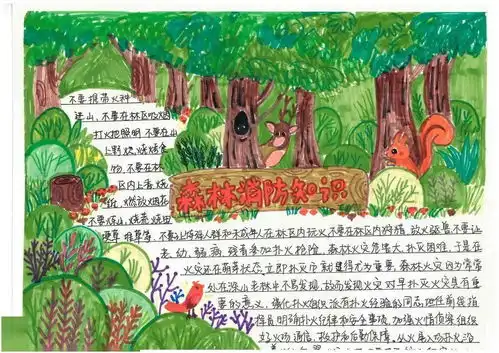 不要携带火种
进山，不要在林区吸烟
打火把照明，不要在山
上野炊、烧烤食
物，不要在林
区内上香、烧
纸、燃放烟花
森林消防知识
不要炼山、烧荒、烧田
埂草、堆草等，不要让特殊人群和未成年人在林区内玩火，不要在林区内狩猎、放火驱兽，不要让
老、幼、弱、病、残者参加扑火抢险。森林火灾危害大，扑火困难，于是在
火灾还在萌芽状态，立即扑灭
处在深山老林中不易发现，故而发现火灾对早扑灭火灾具有重
要的意义。强化扑火组织，派有扑火经验的同志担任前线指
挥员，明确扑火纪律和安全事项，加强火情侦察，组织
好火场通信、救护和后勤保障。从火尾入场扑火，沿